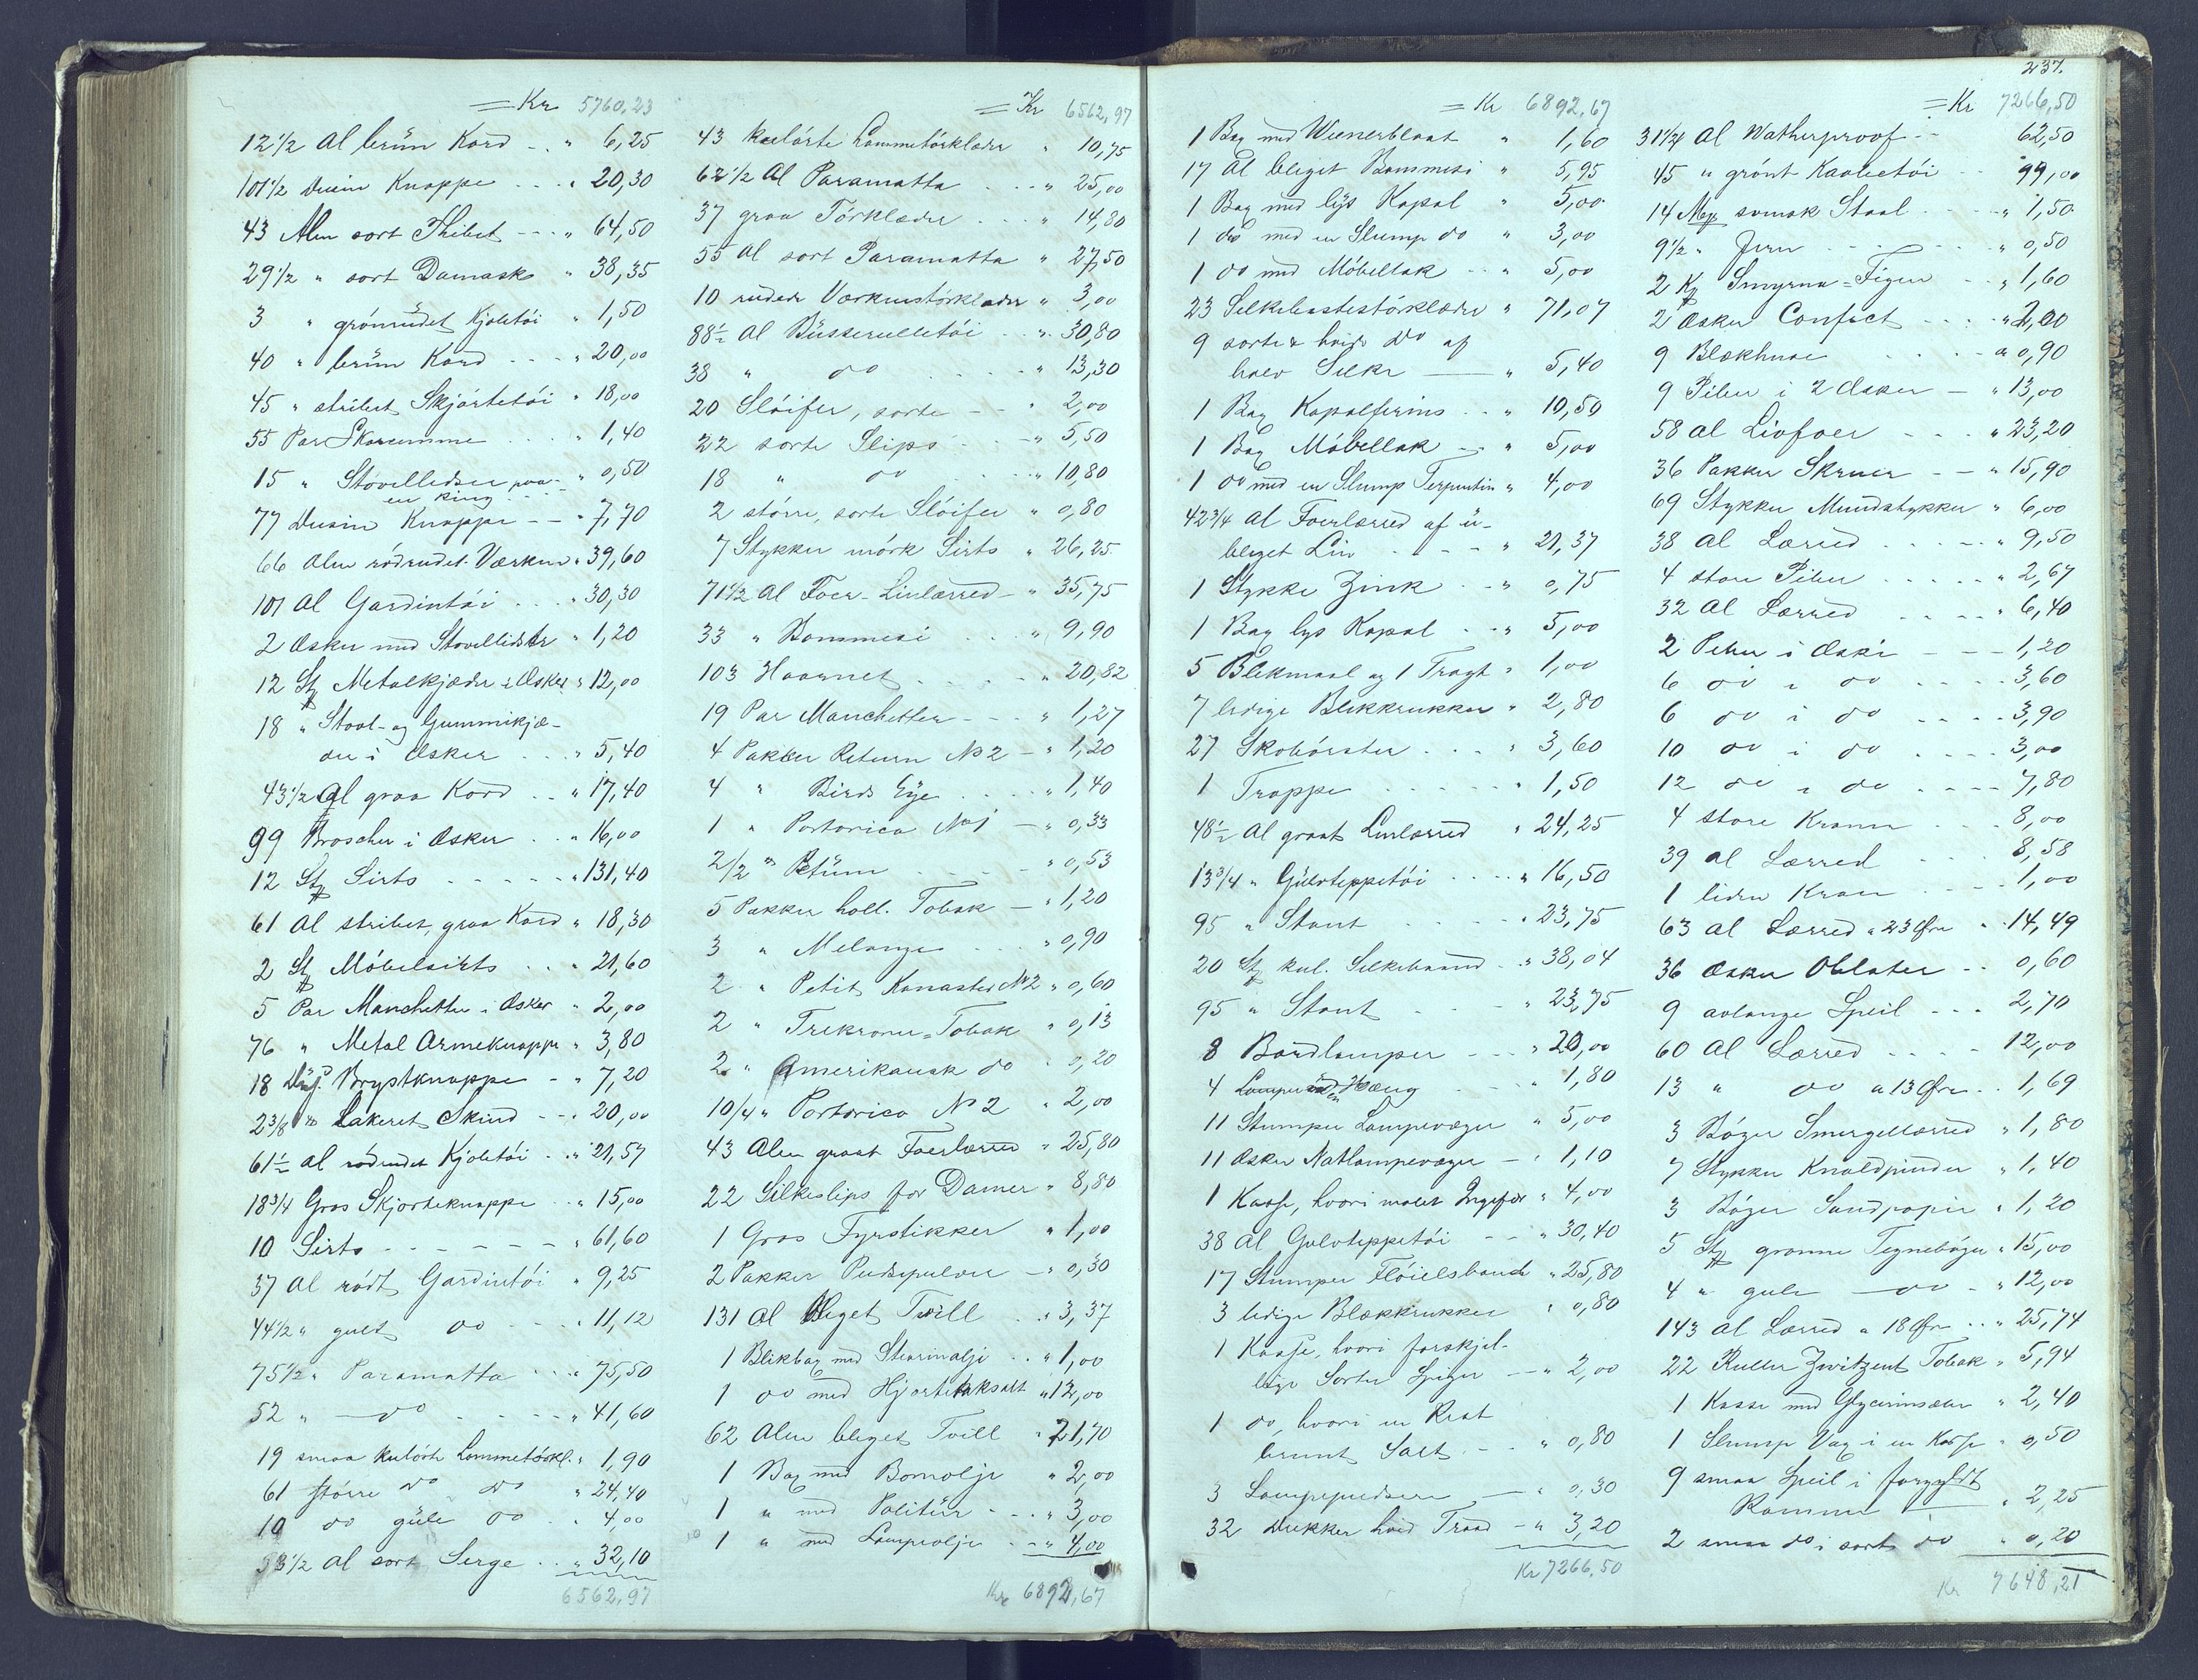 = Kr 5760,23
12 1/2 Al brün Kord - . " 6,25
101 1/2 Dusin Knappe . . . " 20,30
43 Alen sort Thibet - - - " 64,50
29 1/2 " sort Damask " 38,35
3 " grönrüdet Kjoletöi " 1,50
40 " brün Kord - - - " 20,00
45 " stribet Skjörtetöi " 18,00
55 Par Skoremme . . . . " 1,40
15 " Støvellidser paa - " 0,50
en Ring - - -
77 Dusin Knappe - - " 7,70
66 Alen rödrudet Værken " 39,60
101 Al Gardintöi . . . . " 30,30
2 Æsker med Støvellidser " 1,20
12 St Metalkjæder i Æsker " 12,00
18 " Staal- og Gummikjæ-
der i Æsker . . . " 5,40
43 1/2 Al graa Kord . . " 17,40
99 Broscher i Æsker . . " 16,00
12 St Sirts - - - - - " 131,40
61 Al stribet, graa Kord " 18,30
2 St Möbelsirts . . . " 21,60
5 Par Manchetter i Æsker " 2,00
76 " Metal Armeknappe " 3,80
18 Brystknappe - " 7,20
2 3/8 " Lakeret Skind - - " 20,00
61 1/2 Al rödrudet Kjoletöi . . " 21,57
18 3/4 Gros Skjorteknappe . . " 15,00
10 Sirts - - - - - - " 61,60
37 Al rödt Gardintöi " 9,25
44 1/2 " gult do . . . . " 11,12
75 1/2 " Paramatta . . . " 75,50
52 " — do . . - - - " 41,60
19 smaa kulörte Lommetörkl. " 1,90
61 större do do " 24,40
10 do güle do . " 4,00
53 1/2 Al sort Serge . . " 32,10
6562,97
= Kr 6562,97
43 kulörte Lommetörklæder " 10,75
62 1/2 Al Paramatta . . - " 25,00
37 graa Törklæder . . . " 14,80
55 Al sort Paramatta " 27,50
10 rudede Værkenstörklæder " 3,00
88 1/2 Al Büsserulletöi . . " 30,80
38 " do . . . . " 13,30
20 Slöifer, sorte - - " 2,00
22 sorte Slips . . - " 5,50
18 " do . . . " 10,80
2 större, sorte Slöifer " 0,80
7 Stykker mörk Sirts " 26,25
71 1/2 Al Foer-Linlærred - " 35,75
33 " Bommesi . . " 9,90
103 Haarnet . . . . . " 20,82
19 Par Manchetter - - - " 1,27
4 Pakker Return No 2 - " 1,20
4 " Birds Eye . . . . " 1,40
1 " Portorico No 1 — " 0,33
2 1/2 " Petüm . . - - - " 0,53
5 Pakker holl. Tobak — " 1,20
3 " Melange . . . . " 0,90
2 " Petit Kanaster No 2 " 0,60
2 " Trekrone-Tobak " 0,13
2 " Amerikansk do " 0,20
10/4 " Portorico No 2 " 2,00
43 Alen graat Foerlærred " 25,80
22 Silkeslips for Damer " 8,80
1 Gros Fyrstikker " 1,00
2 Pakker Pudsepulver - " 0,30
131 Al bleget Tvill . . " 3,37
1 Blikbax med Stearinolje . . " 1,00
1 do med Hjortetaksalt " 12,00
62 Alen bleget Tvill " 21,70
1 Bax med Bomolje " 2,00
1 " med Politür - . . " 3,00
1 " med Lampeolje . . " 4,00
Kr 6892,67
= Kr 6892,67
1 Bax med Wienerblaat " 1,60
17 Al bleget Bommesi " 5,95
1 Bax med lys Kopal " 5,00
1 do med en Slump do " 3,00
1 do med Möbellak . . " 5,00
23 Silkebastestörklæder " 71,07
9 sorte & hvide do af
halv Silke — " 5,40
1 Bax Kopalfernis . . " 10,50
1 Bax Möbellak - . " 5,00
1 do med en Slump Terpentin " 4,00
42 3/4 Al Foerlærred af ü-
bleget Lin . - - - " 21,37
1 Stykke Zink . . . " 0,75
1 Bax lys Kopal . . " 5,00
5 Blikmaal og 1 Tragt " 1,00
7 ledige Blikkrukker " 2,80
27 Skobörster . . . " 3,60
1 Trappe . . . . . . " 1,50
48 1/2 Al graat Linlærred " 24,25
13 3/4 " Gülvteppetöi . . . " 16,50
95 " Stout . . . . . " 23,75
20 St kul. Silkebaand . . " 38,04
95 " Stout . . - " 23,75
8 Bordlamper - - - " 20,00
4 Lamper Hæng - . . " 1,80
11 Stumper Lampevæger " 5,00
11 Æsker Natlampevæger - " 1,10
1 Kasse, hvori malet Ingefær " 4,00
38 Al Gulvteppetöi - - " 30,40
17 Stumper Flöielsbaand " 25,80
3 ledige Blækkrukker " 0,80
1 Kasse, hvori forskjel-
lige Sorter Spiger - - " 2,00
1 do, hvori en Rest
brunt Salt . - . " 0,80
3 Lampepudsere — " 0,30
32 Dukker hvid Traad - " 3,20
Kr 7266,50
237.
= Kr 7266,50
31 1/4 Al Watherproof - - 62,50
45 " grönt Kaabetöi - - 99,00
14 svensk Staal . . . . " 1,50
9 1/2 " Jern . . - . . " 0,50
2 Smyrna-Figen . . " 1,60
2 Æsker Confect . . . . " 2,00
9 Blækhuse . . . . - a 0,90
9 Piber i 2 Æsker — " 13,00
58 Al Livfoer - - - " 23,20
36 Pakker Skruer - - " 15,90
69 Stykker Mundstykker " 6,00
38 Al Lærred . . . - - " 9,50
4 store Piber . . . . . " 2,67
32 Al Lærred . . . . " 6,40
2 Piber i Æske - - - 1,20
6 do i do . . . . . 3,60
6 do i do . . - - . . 3,90
10 do i do . . . . 3,00
12 do i do . . - - - 7,80
4 store Kraner . . 8,00
39 al Lærred . . . . 8,58
1 liden Kran . . . . - 1,00
63 al Lærred a 23 Øre " 14,49
36 Æsker Oblater - . . 0,60
9 avlange Speil - - - 2,70
60 Al Lærred . . . . 12,00
13 " do a 13 Øre . . 1,69
3 Böger Smergellærred " 1,80
7 Stykker Knaldpinder " 1,40
3 Böger Sandpapir " 1,20
5 St grønne Tegneböger " 15,00
4 " gule — do - " 12,00
143 Al Lærred a 18 Øre . . " 25,74
22 Ruller Zwitzent Tobak " 5,94
1 Kasse med Glycerinsæbe " 2,40
1 Slump Vax i en Kasse " 0,50
9 smaa Speil i forgyldt
Ramme — " 2,25
2 smaa do i sort do " 0,20
Kr 7648,21